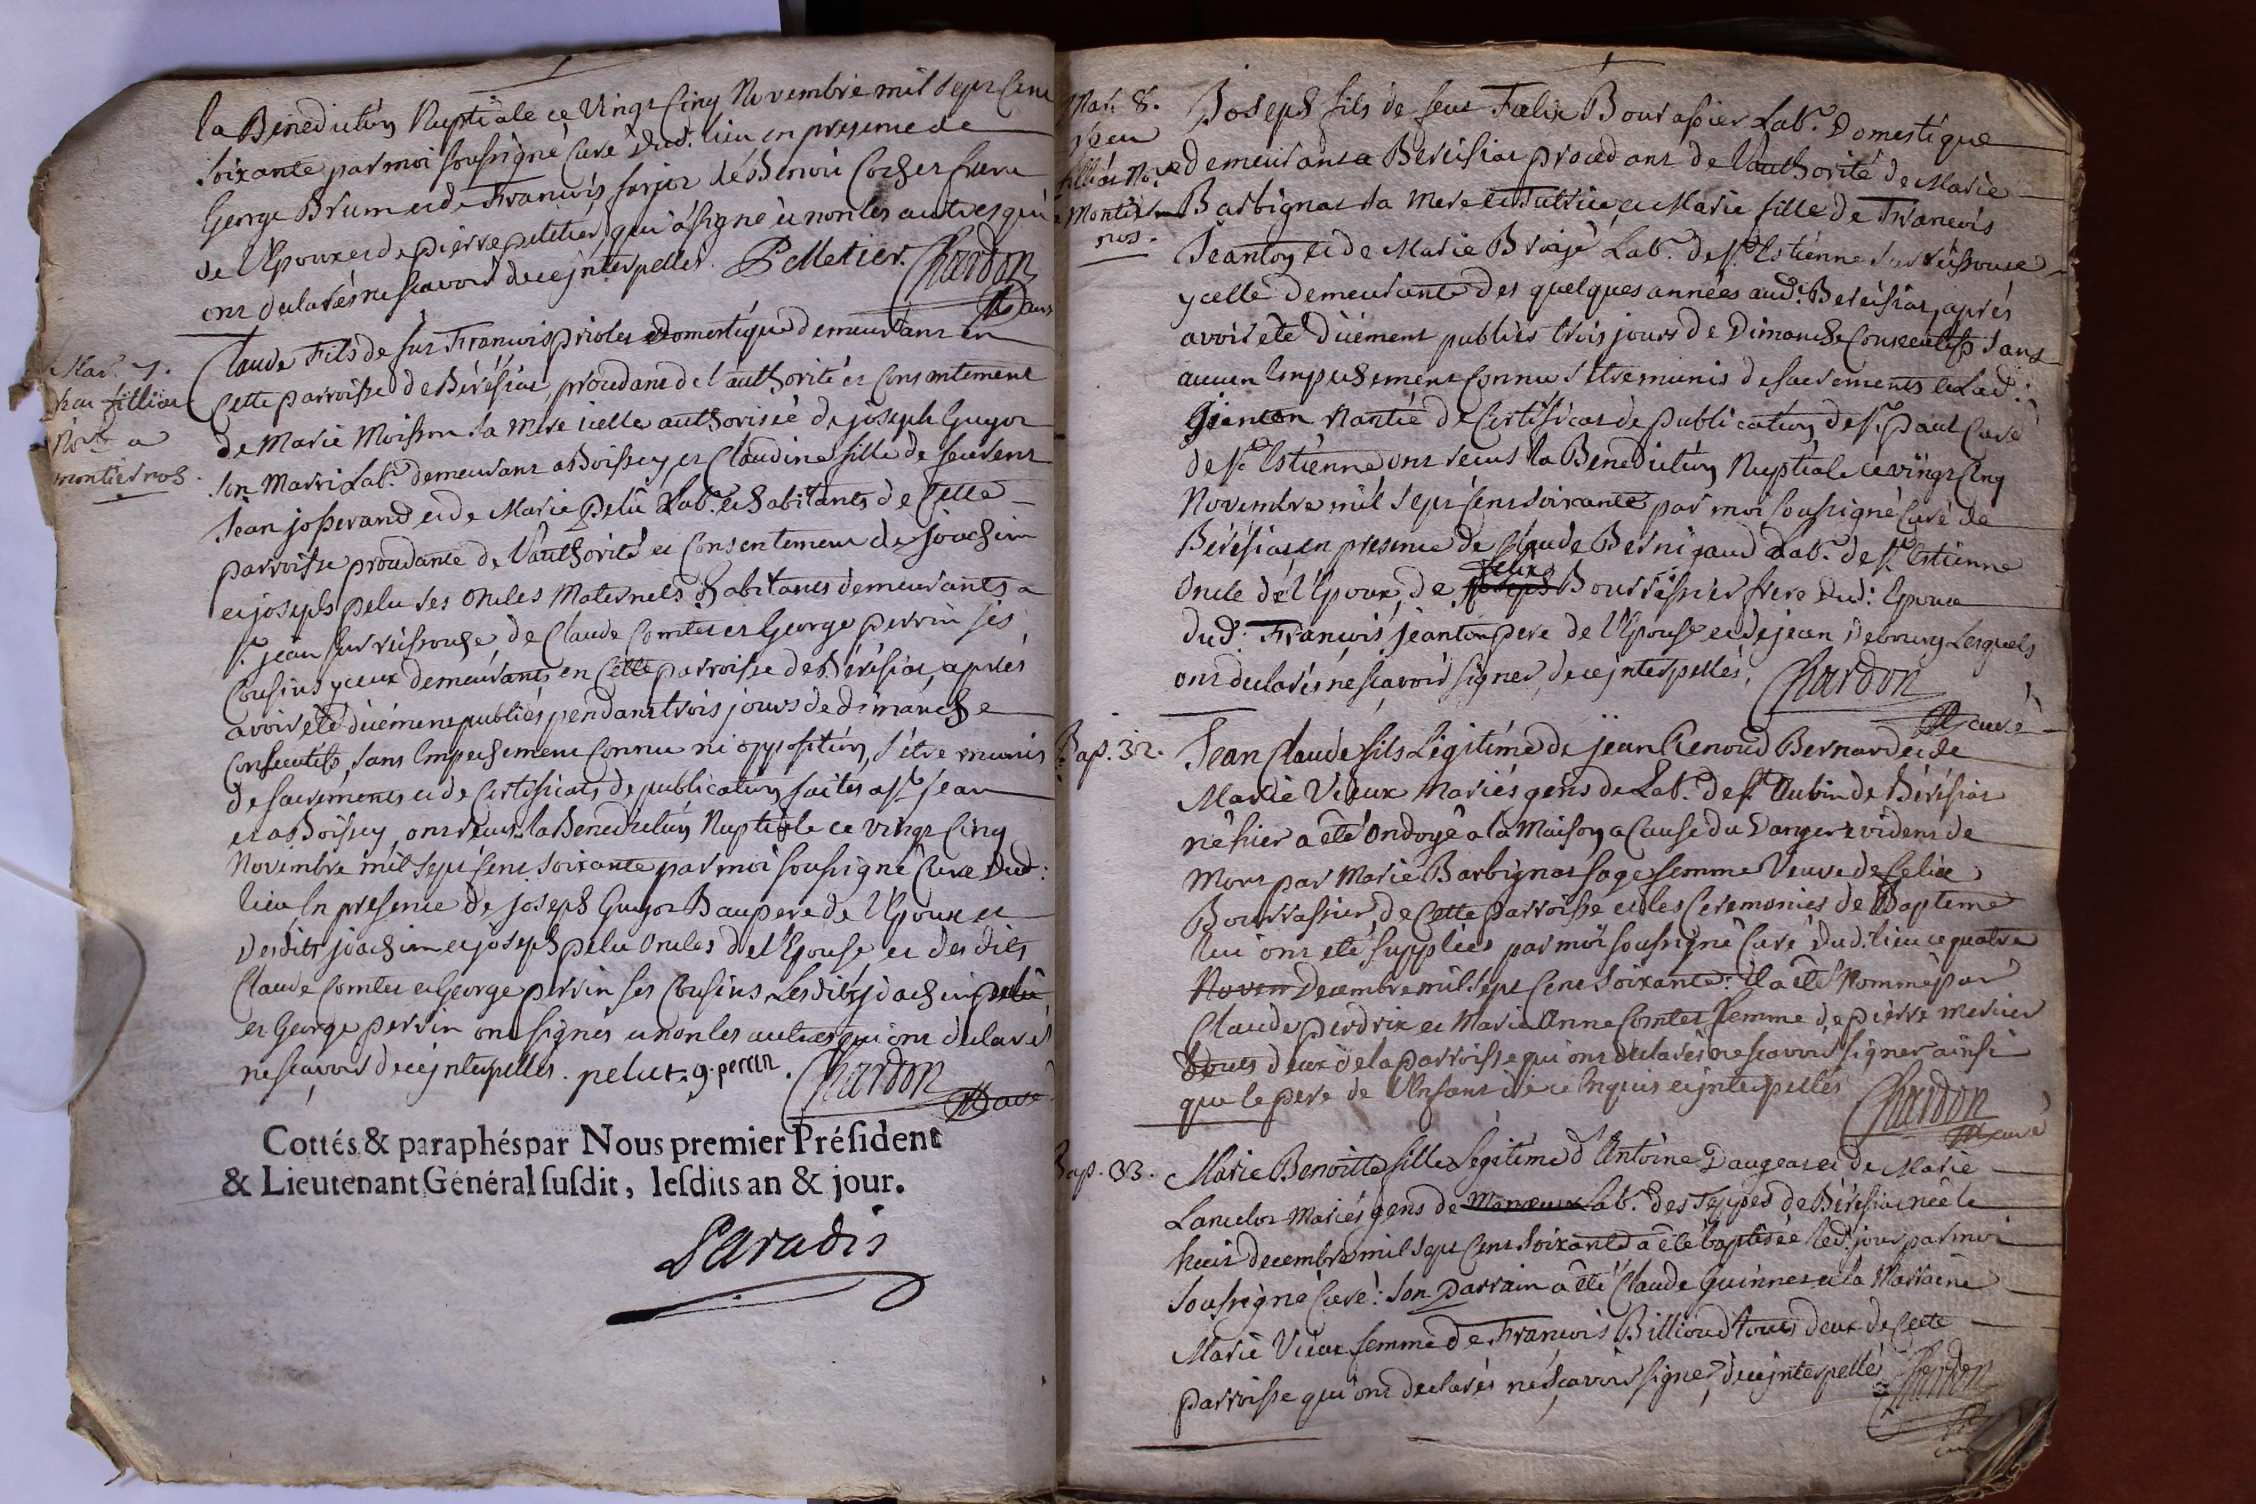 la Benediction Nuptiale ce vingt Cinq Novembre mil sept Cent
soixante par moi soussigné Curé dud. lieu en presence de
George Brun et de François sarjot de Benoit Cochet frere
de l'Epoux et de pierre peletier, qui a signé et non les autres qui
ont declarés ne scavoir de ce jnterpellés. Pelletier. Chardon
Curé
Mar. 7.
heu fillion
No.re a
montiernos.
Claude Fils de fut François prioles domestique demeurant en
Cette parroisse de Bérésiat, procedant de l'authorité et Consentement
de Marie Moisson sa Mere icelle authorisée de joseph Guyot
son Marri Lab.r demeurant a Boissey, et Claudine fille de feu
Jean josserand et de Marie Pelu Lab.r et habitants de Cette
parroisse procedante de l'authorité et Consentement de joachim
et joseph pelu ses oncles Maternels habitants demeurants a
S.t jean sur reissouse, de Claude Comtet et George perrin ses
Cousins yceux demeurants en Cette parroisse de Bérésiat, aprés
avoir été düement publiés pendant trois jours de dimanche
Consecutifs, sans Empechement Connu ni opposition, s'être munis
de sacrements et de Certificats de publication faites a S.t jean
et a Boissey, ont reçus la Benediction Nuptiale ce vingt Cinq
Novembre mil sept Cent soixante par moi soussigné Curé dud:
lieu En presence de joseph Guyot Baupere de l'Epoux et
desdits joachim et joseph pelu oncles de l'Epouse et des dits
Claude Comtet et George perrin ses Cousins, Lesdits joachim pelu
et George perrin ont signés et non les autres qui ont declarés
ne scavoir de ce jnterpellés. pelut. g. perrin. Chardon
Curé
Cottés & paraphés par Nous premier Préſident
& Lieutenant Général ſuſdit, leſdits an & jour.
Paradis
Mar. 8.
heu
fillion No.re
a Montier
nos.
Joseph fils de feut Fælix Bourassier Lab.r Domestique
demeurant a Beresiat procedant de l'authorité de Marie
Barbignat sa Mere et Tutrice et Marie fille de François
Jeanton et de Marie Broyé Lab.r de S.t Estienne sur reissouse
ycelle demeurante des quelques années aud. Beresiat, aprés
avoir été düement publiés trois jours de Dimanche Consecutifs sans
aucun Empechement Connu s'etre munis de sacrements et Lad:
Jeanton Nantie de Certificat de publication de S.r paul Curé
de S.t Estienne ont reçus la Benediction Nuptiale ce vingt Cinq
Novembre mil sept Cent soixante par moi soussigné Curé de
Bérésiat, en presence de Claude Bernigaud Lab.r de S.t Estienne
felix
Oncle de l'Epoux, de joseph Bourrassier frere dud: Epoux
dud: François jeanton pere de l'Epouse et de jean Lesquels
ont declarés ne scavoir signer, de ce jnterpellés, Chardon
Curé
Bap. 32.
Jean Claude fils Légitime de jean Renoud Bernard et de
Marie Vieux Mariés gens de Lab.r de S.t Aubin de Bérésiat
né hier a été Ondoyé a la Maison a Cause du Danger evident de
Mort par Marie Barbignat sage femme Veuve de felix
Bourrassier, de Cette parroisse et les Ceremonies de Bapteme
lui ont eté supplées par moi soussigné Curé dud. lieu ce quatre
Novem Decembre mil sept Cent soixante: Il a été Nommé par
Claude perdrix et Marie Anne Comtet femme de pierre Mercier
tous deux de la parroisse qui ont declarés ne scavoir signer ainsi
que le pere de l'Enfant de ce Enquis et jnterpellés Chardon
Curé
Bap. 33.
Marie Benoitte fille Légitime d'Antoine Daugeat et de Marie
Lancelot Mariés gens de Lab.r des Teppes de Bérésiat née le
huit decembre mil sept Cent soixante a été baptisée led. jour par moi
soussigné Curé: son Parrain a été Claude Guinnet et la Marraine
Marie Vieux femme de François Billioud tous deux de Cette
parroisse qui ont declarés ne sçavoir signer, de ce jnterpellés Chardon
Curé